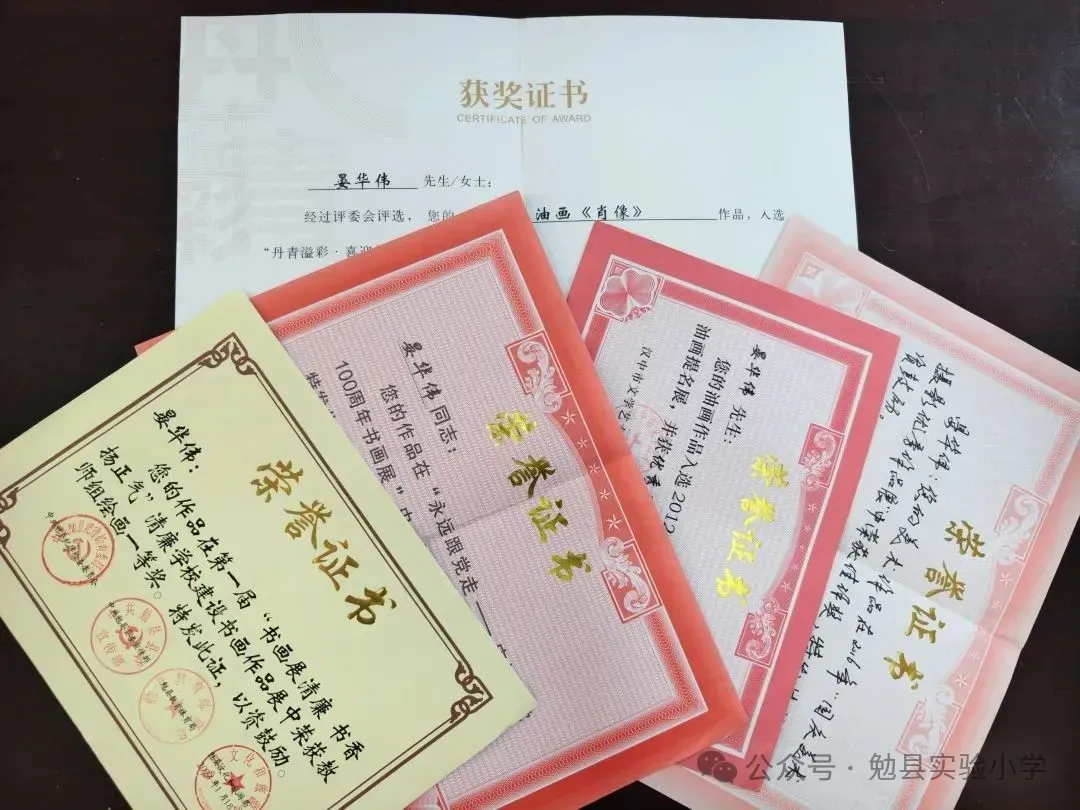 获奖证书
CERTIFICATE OF AWARD
晏华伟 先生/女士:
经过评委会评选，您的 油画《肖像》 作品，入选
“丹青溢彩·喜迎
荣誉证书
晏华伟：
您的作品在第一届“书画展清廉 书香
扬正气”清廉学校建设书画作品展中荣获教
师组绘画一等奖。特发此证，以资鼓励。
荣誉证书
晏华伟同志：
您的作品在“永远跟党走
100周年书画展”中
特发
荣誉证书
晏华伟 先生：
您的油画作品入选 2012
油画提名展，并获优秀
汉中市文学艺
荣誉证书
晏华伟：您的美术作品在2016年“国庆
摄影
公众号·勉县实验小学